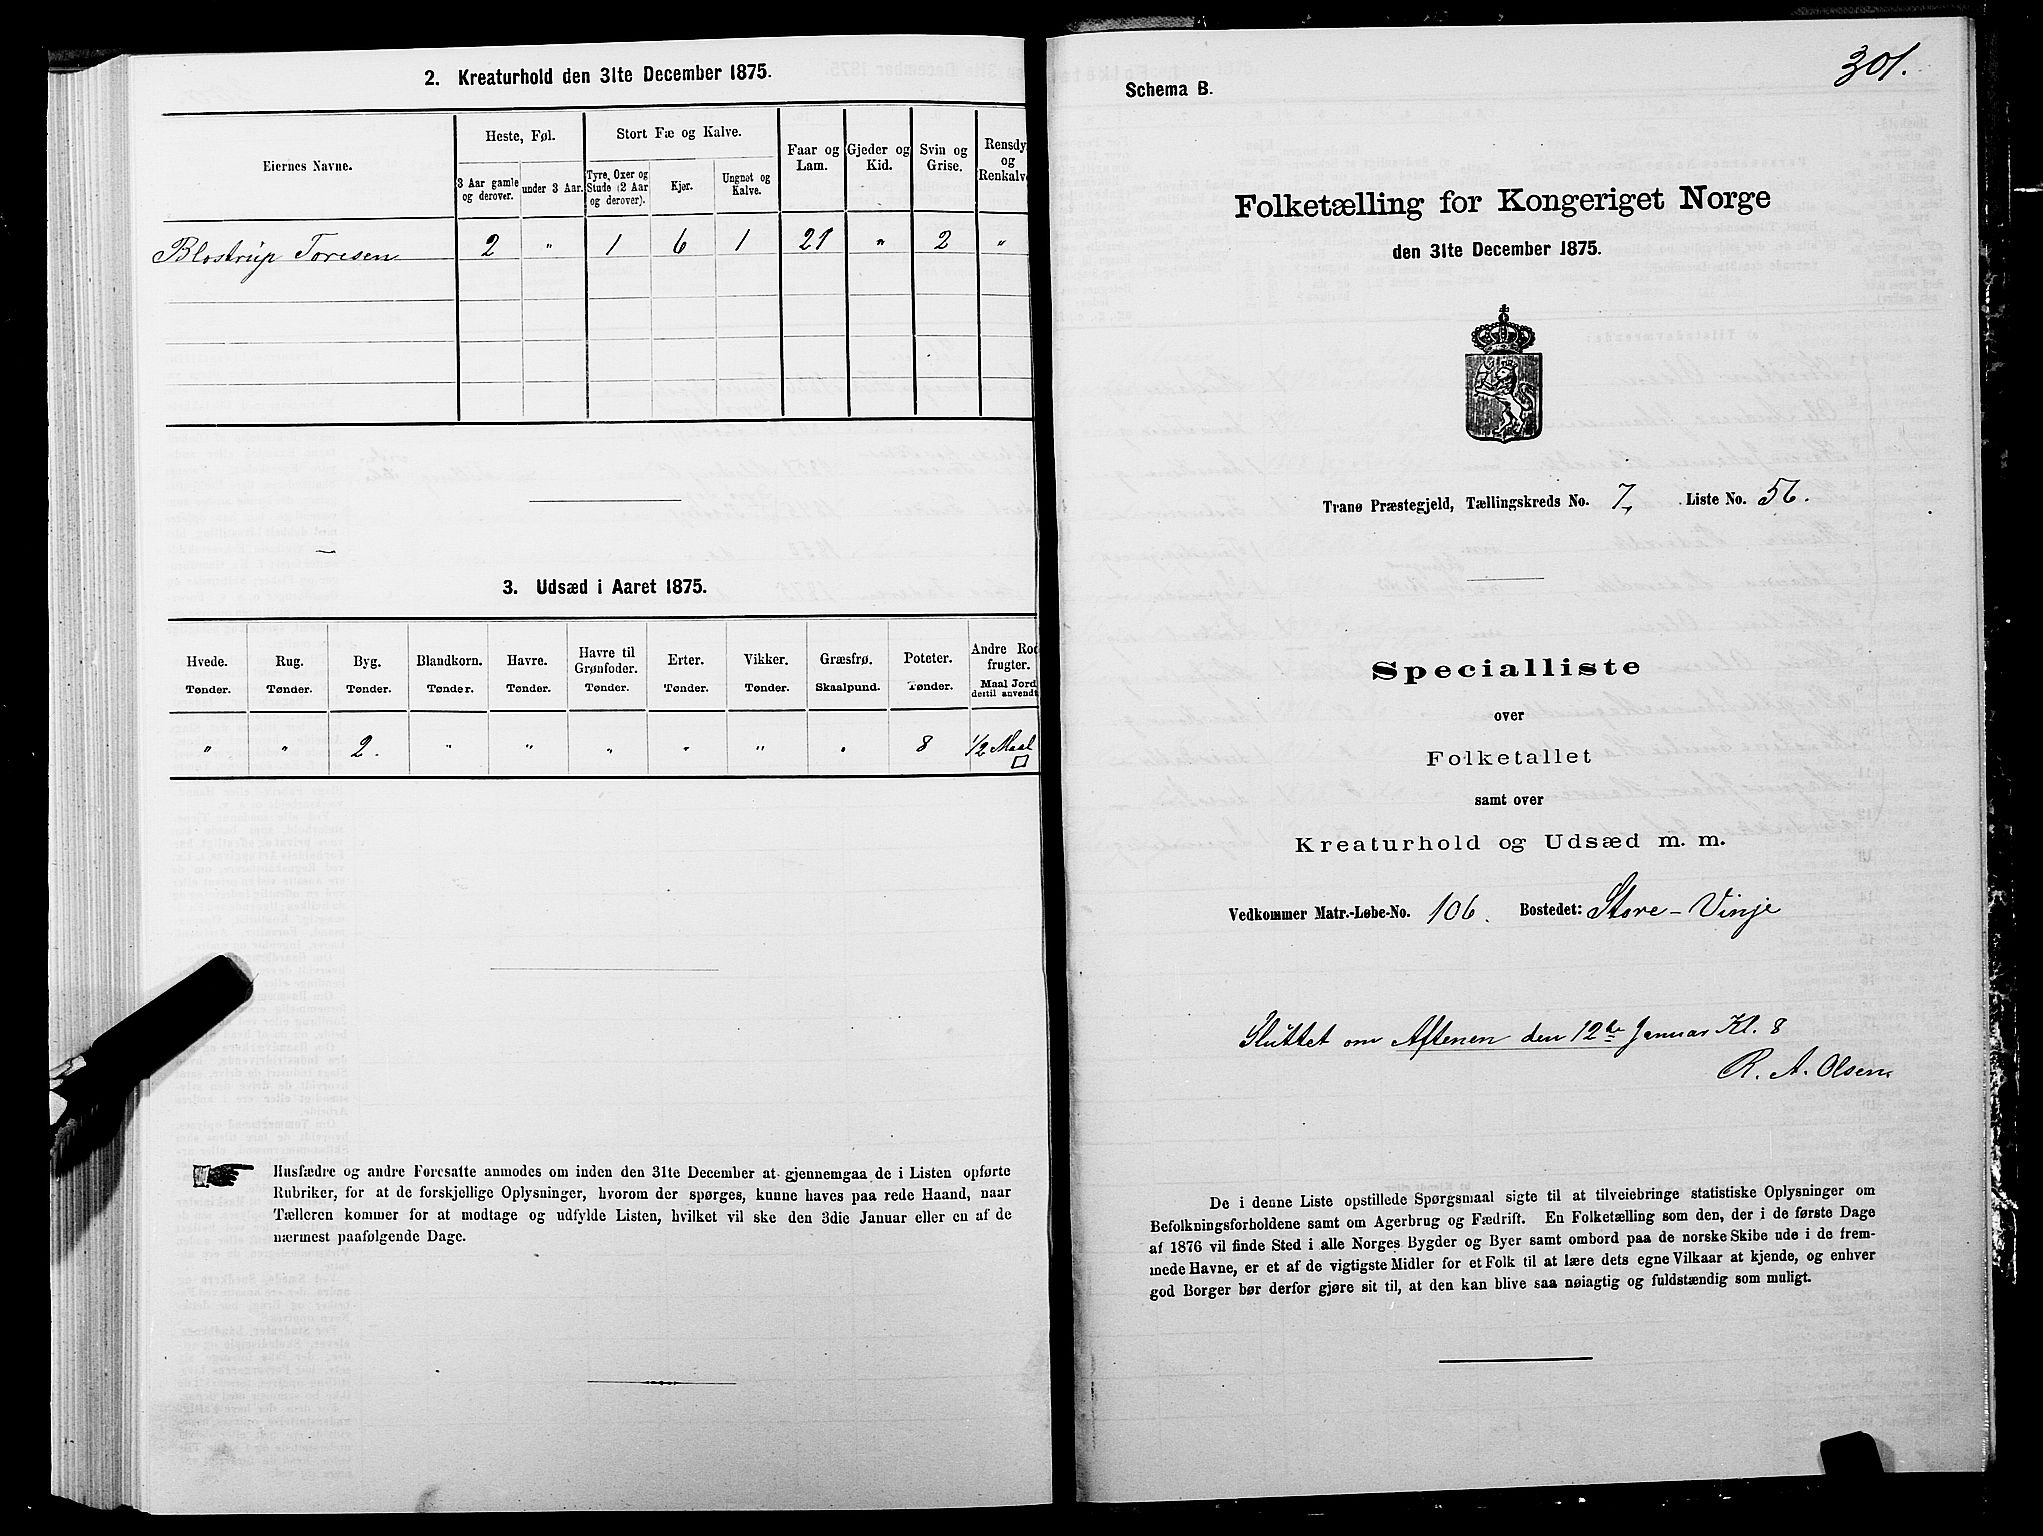 2. Kreaturhold den 31te December 1875.
Eiernes Navne. Heste, Føl. Stort Fæ og Kalve. Faar og Lam. Gjeder og Kid. Svin og Grise. Rensdy og Renkalve
3 Aar gamle og derover. under 3 Aar. Tyre, Oxer og Stude (2 Aar og derover). Kjør. Ungnøt og Kalve.
Blostrup Toresen 2 " 1 6 1 21 " 2 "
3. Udsæd i Aaret 1875.
Hvede. Rug. Byg. Blandkorn. Havre. Havre til Grønfoder. Erter. Vikker. Græsfrø. Poteter. Andre Rod frugter.
Tønder. Tønder. Tønder. Tønder. Tønder. Tønder. Tønder. Tønder. Skaalpund. Tønder. Maal Jord dertil anvendt
" " 2. " " " " " " 8 1/2 Maal □
Husfædre og andre Foresatte anmodes om inden den 31te December at gjennemgaa de i Listen opførte
Rubriker, for at de forskjellige Oplysninger, hvorom der spørges, kunne haves paa rede Haand, naar
Tælleren kommer for at modtage og udfylde Listen, hvilket vil ske den 3die Januar eller en af de
nærmest paafølgende Dage.
301.
Schema B.
Folketælling for Kongeriget Norge
den 31te December 1875.
Tranø Præstegjeld, Tællingskreds No. 7, Liste No. 56.
Specialliste
over
Folketallet
samt over
Kreaturhold og Udsæd m. m.
Vedkommer Matr.-Løbe-No. 106. Bostedet: Store-Vinje
Sluttet om Aftenen den 12te Januar Kl. 8
R. A. Olsen.
De i denne Liste opstillede Spørgsmaal sigte til at tilveiebringe statistiske Oplysninger om
Befolkningsforholdene samt om Agerbrug og Fædrift. En Folketælling som den, der i de første Dage
af 1876 vil finde Sted i alle Norges Bygder og Byer samt ombord paa de norske Skibe ude i de frem-
mede Havne, er et af de vigtigste Midler for et Folk til at lære dets egne Vilkaar at kjende, og enhver
god Borger bør derfor gjøre sit til, at den kan blive saa nøiagtig og fuldstændig som muligt.